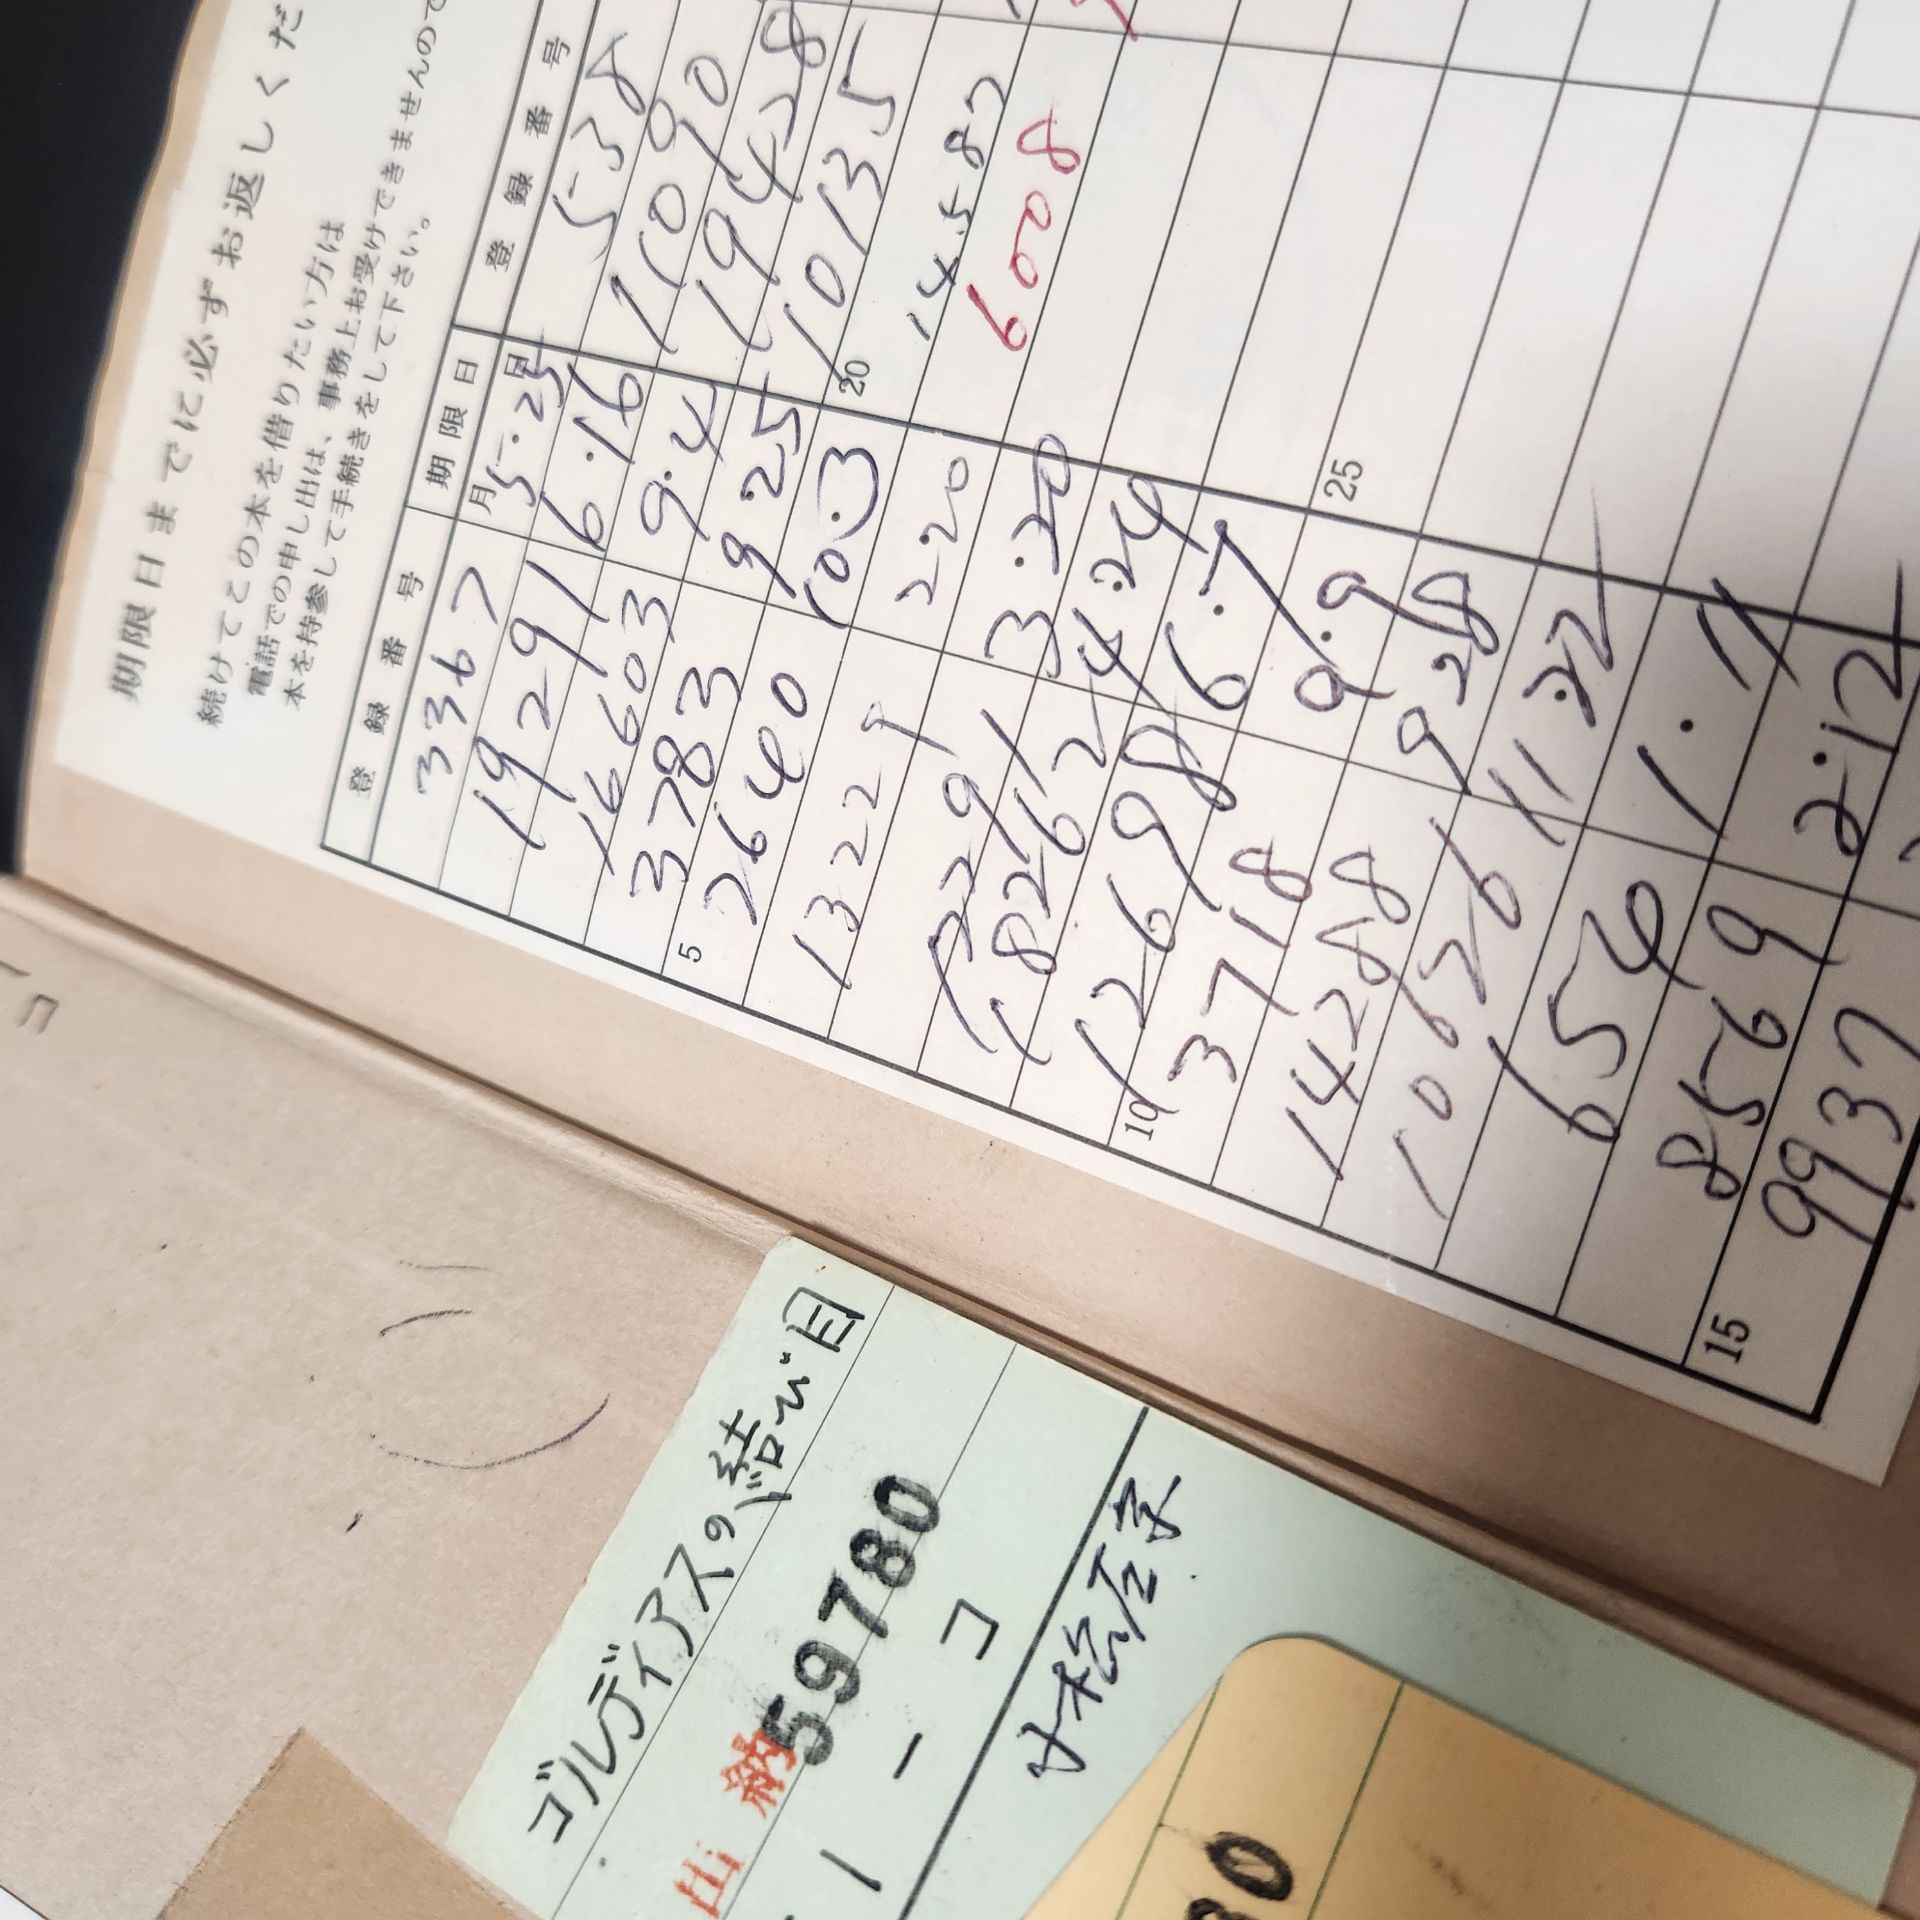 期限日までに必ずお返しくだ
続けてこの本を借りたい方は
電話での申し出は、事務上お受けできませんので
本を持参して手続きをして下さい。
登録番号 期限日 登録番号
月 日
3367 5.25 538
19291 6.16 11090
16603 9.4 19428
3783 9 25 10135
5 2640 10.3 20
13229 2.20 14587
3.20 6008
18262 4.24
12698 6.7
10 3718 9.9 25
14288 9 28
10626 11.22
654 1.11
8569 2.12
15 9937
ゴルディアスの結び目
出納 59780
コ
小松左京
80
コ